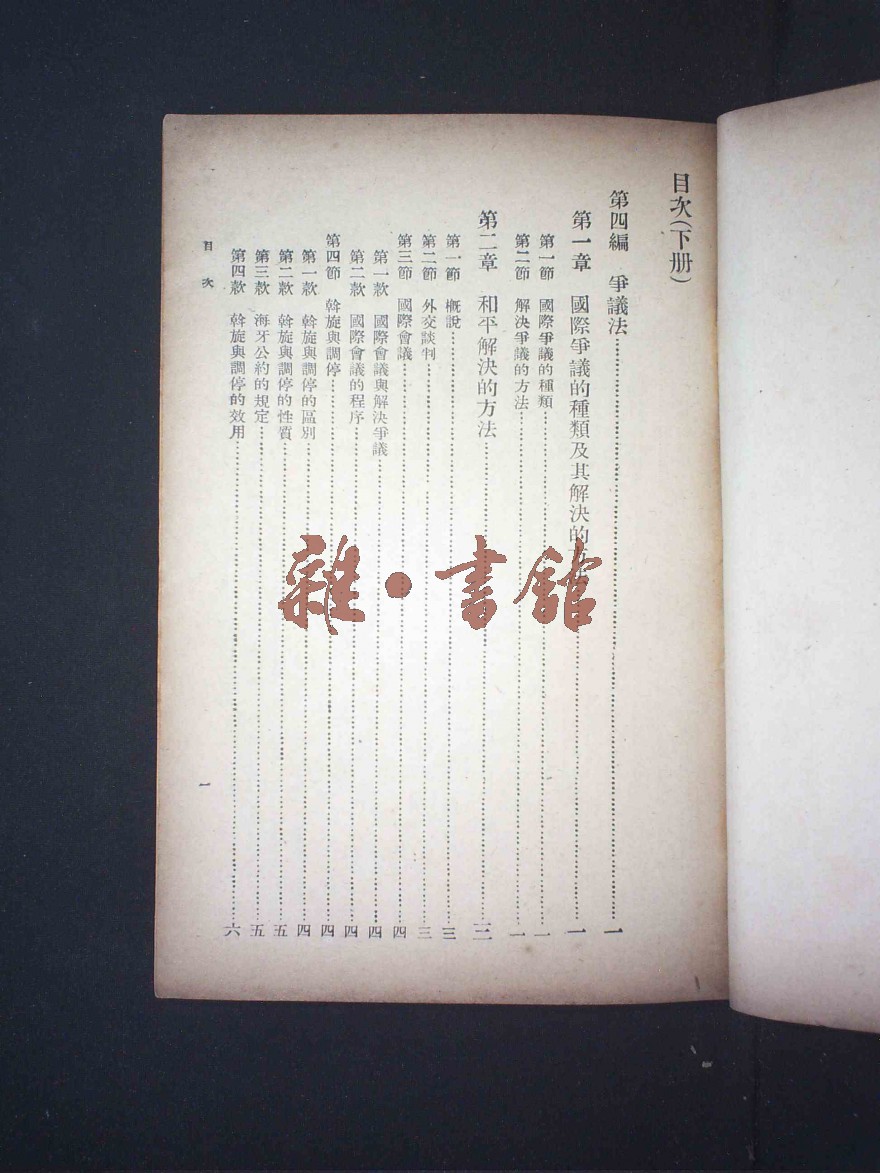 目次(下册)
第四編 爭議法…………一
第一章 國際爭議的種類及其解決的…………一
第一節 國際爭議的種類…………一
第二節 解決爭議的方法…………一
第二章 和平解決的方法…………三
第一節 概說…………三
第二節 外交談判…………三
第三節 國際會議…………四
第一款 國際會議與解決爭議…………四
第二款 國際會議的程序…………四
第四節 斡旋與調停…………四
第一款 斡旋與調停的區別…………四
第二款 斡旋與調停的性質…………五
第三款 海牙公約的規定…………五
第四款 斡旋與調停的效用…………六
目次
一
雜·書館